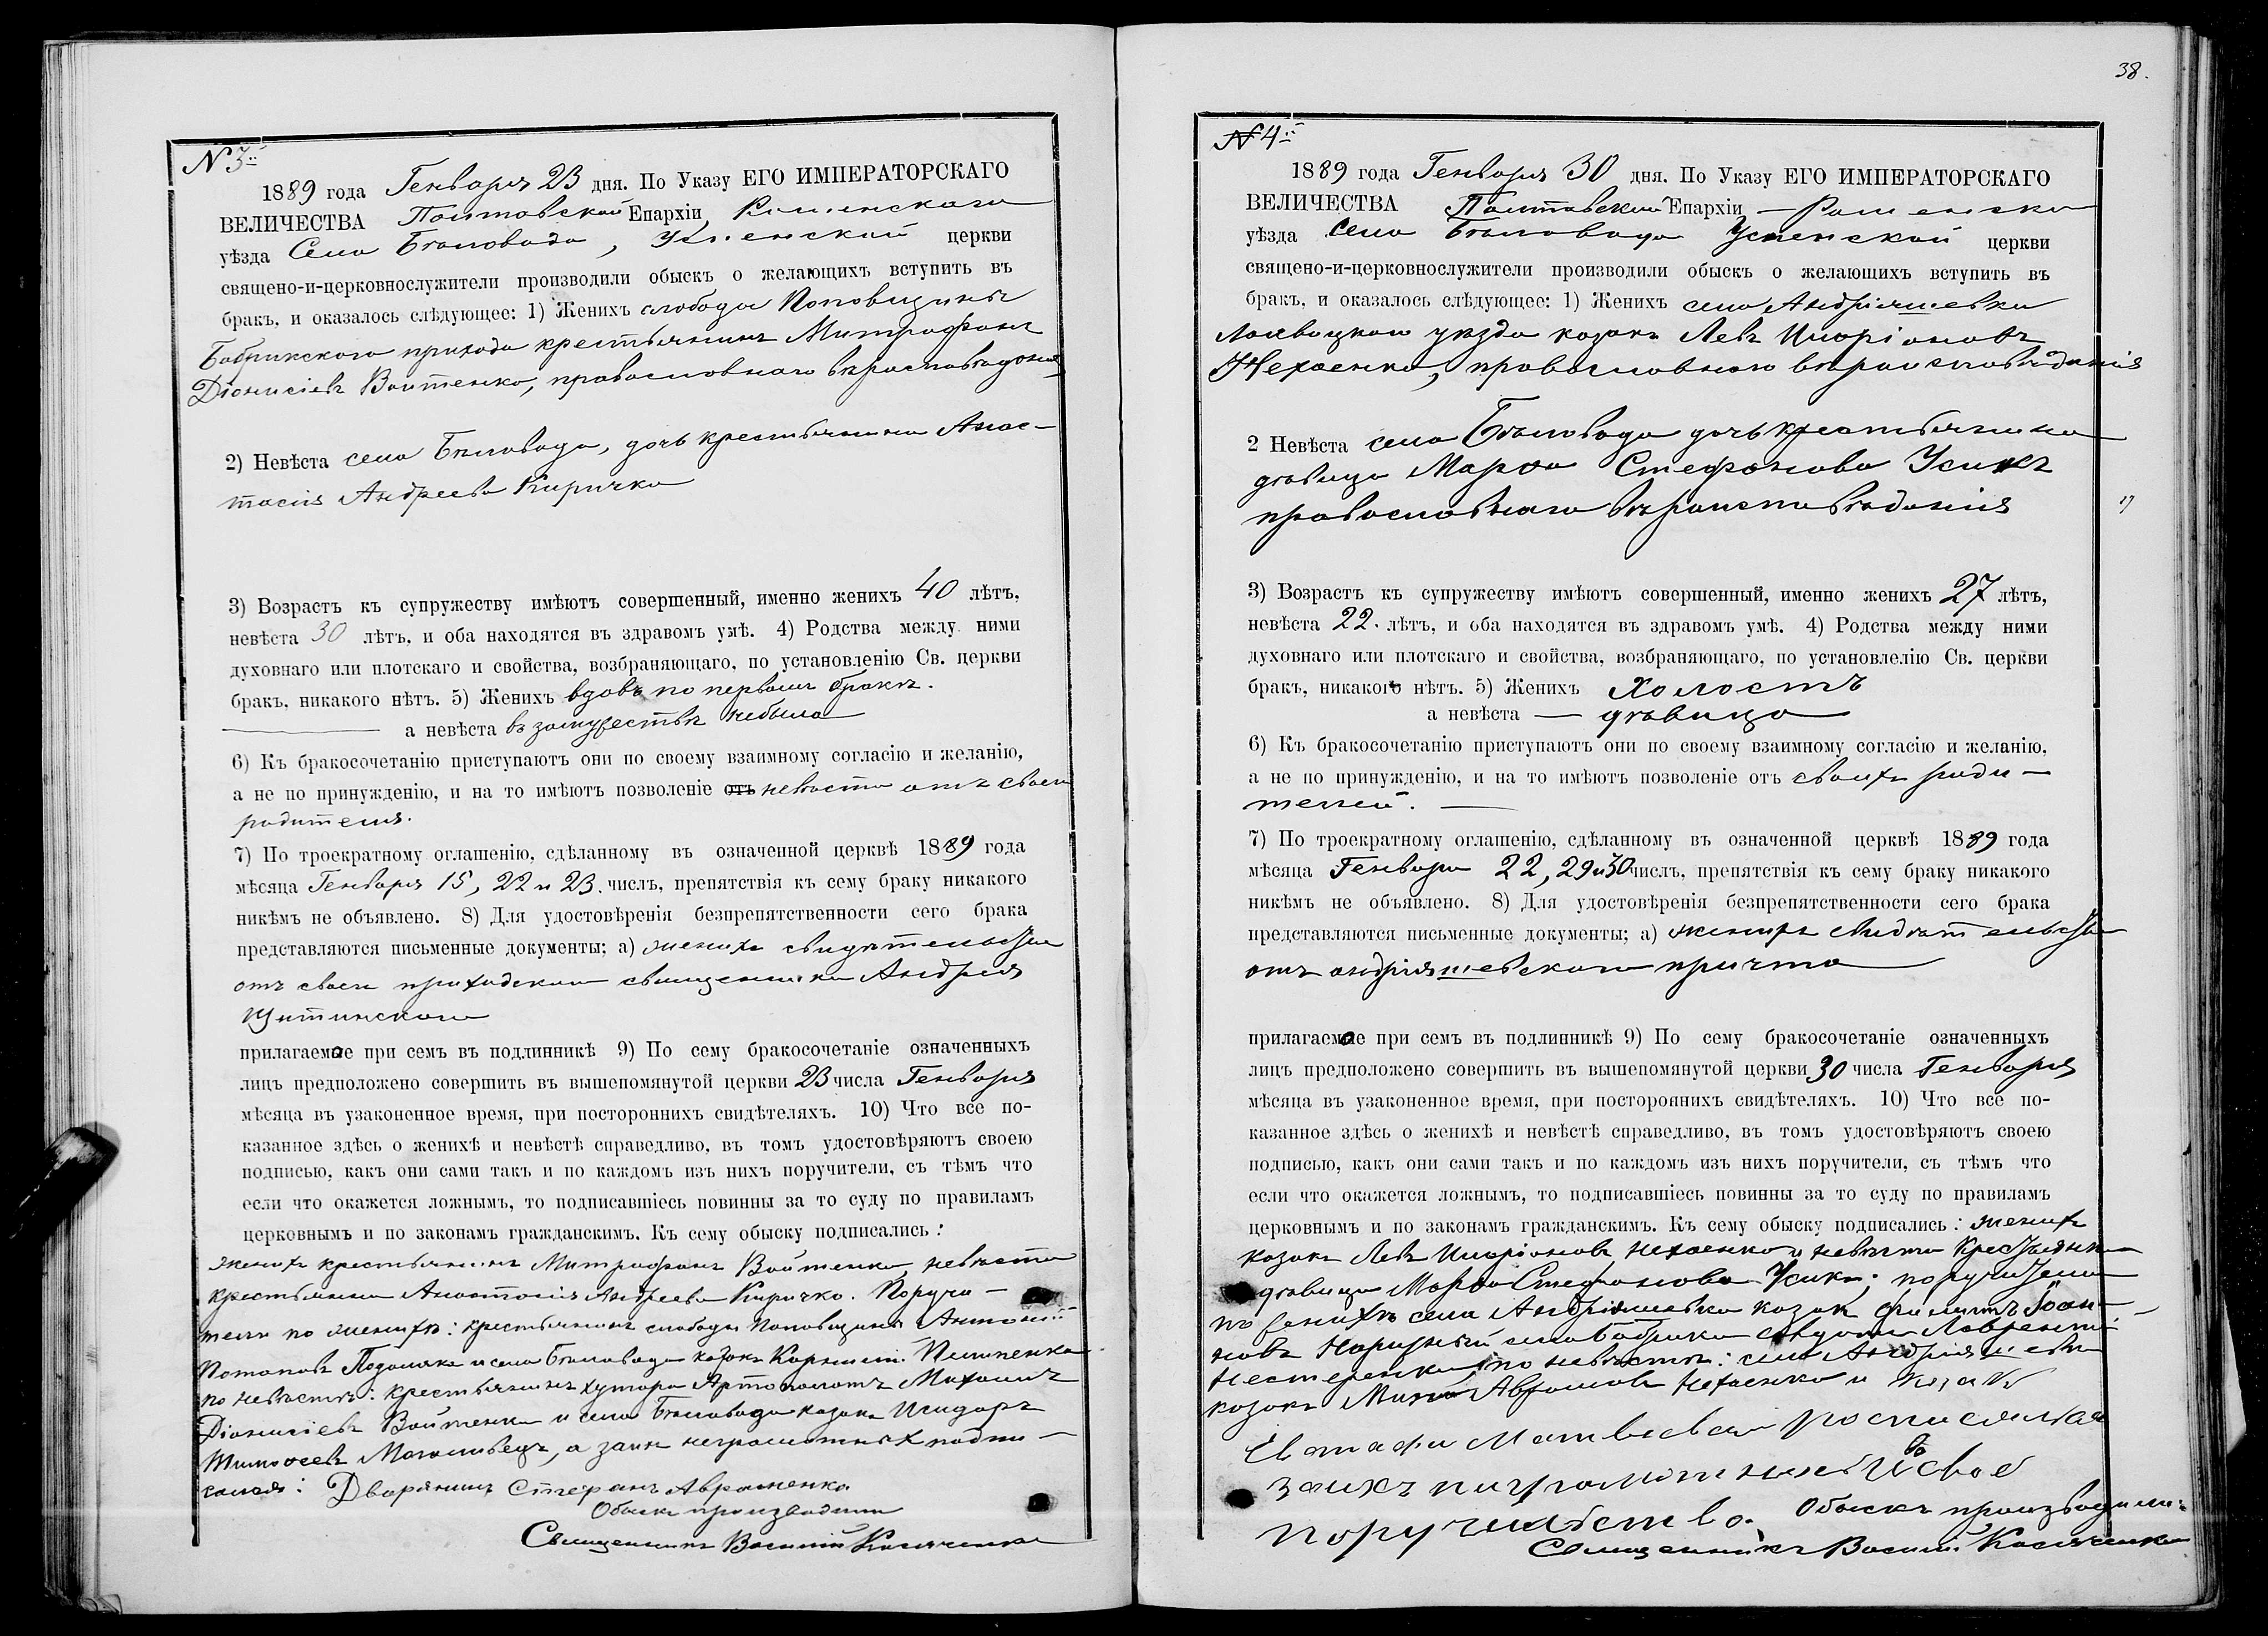 N 3й
1889 года Генваря 23 дня. По Указу ЕГО ИМПЕРАТОРСКАГО
ВЕЛИЧЕСТВА Полтавской Епархіи, Роменскаго
уѣзда Села Бѣловода, Успенской церкви
священо-и-церковнослужители производили обыскъ о желающихъ вступить въ
бракъ, и оказалось слѣдующее: 1) Женихъ слободы Поповщины
Бобрикского прихода крестьянинъ Митрофанъ
Діонисіевъ Войтенко, православнаго вѣроисповѣданія
2) Невѣста села Бѣловода, дочь крестьянина Анас-
тасія Андреева Киричко
3) Возрастъ къ супружеству имѣютъ совершенный, именно женихъ 40 лѣтъ,
невѣста 30 лѣтъ, и оба находятся въ здравомъ умѣ. 4) Родства между ними
духовнаго или плотскаго и свойства, возбраняющаго, по установленію Св. церкви
бракъ, никакого нѣтъ. 5) Женихъ вдовъ по первомъ бракѣ.
а невѣста въ замужествѣ небыла
6) Къ бракосочетанію приступаютъ они по своему взаимному согласію и желанію,
а не по принужденію, и на то имѣютъ позволеніе отъ невѣста отъ своего
родителя.
7) По троекратному оглашенію, сдѣланному въ означенной церквѣ 1889 года
мѣсяца Генваря 15, 22 и 23. числъ, препятствія къ сему браку никакого
никѣмъ не объявлено. 8) Для удостовѣренія безпрепятственности сего брака
представляются письменные документы; а) жениха свидѣтельство
отъ своего приходскаго священника Андрея
Щитинскаго
прилагаемое при семъ въ подлинникѣ 9) По сему бракосочетаніе означенныхъ
лицъ предположено совершить въ вышепомянутой церкви 23 числа Генваря
мѣсяца въ узаконенное время, при постороннихъ свидѣтеляхъ. 10) Что все по-
казанное здѣсь о женихѣ и невѣстѣ справедливо, въ томъ удостовѣряютъ своею
подписью, какъ они сами такъ и по каждомъ изъ нихъ поручители, съ тѣмъ что
если что окажется ложнымъ, то подписавшіесь повинны за то суду по правиламъ
церковнымъ и по законамъ гражданскимъ. Къ сему обыску подписались:
женихъ крестьянинъ Митрофанъ Войтенко, невѣста
крестьянка Анастасія Андреева Киричко. Поручи-
тели по женихѣ: крестьянинъ слободы Поповщины Антоній
Потаповъ Подоляка и села Бѣловода козакъ Корнилій Пилипенко
по невѣстѣ: крестьянинъ хутора Артополотъ Михаилъ
Діонисіевъ Войтенко и села Бѣловода козакъ Исидоръ
Тимоѳеевъ Могиливецъ, а заихъ неграмотныхъ подпи-
сался: Дворянинъ Стефанъ Авраменко
Обыскъ производили
Священникъ Василій Косяченко
38.
N 4й
1889 года Генваря 30 дня. По Указу ЕГО ИМПЕРАТОРСКАГО
ВЕЛИЧЕСТВА Полтавской Епархіи — Роменска
уѣзда Села Бѣловода Успенской церкви
священо-и-церковнослужители производили обыскъ о желающихъ вступить въ
бракъ, и оказалось слѣдующее: 1) Женихъ села Андріяшевки
Лохвицкаго уѣзда козакъ Левъ Иларіоновъ
Нехаенко, православнаго вѣроисповѣданія
2 Невѣста села Бѣловода дочь крестьянина
дѣвица Марѳа Стефанова Усикъ
православнаго вѣроисповѣданія
3) Возрастъ къ супружеству имѣютъ совершенный, именно женихъ 27 лѣтъ,
невѣста 22. лѣтъ, и оба находятся въ здравомъ умѣ. 4) Родства между ними
духовнаго или плотскаго и свойства, возбраняющаго, по установлелію Св. церкви
бракъ, никакого нѣтъ. 5) Женихъ Холостъ
а невѣста — дѣвица
6) Къ бракосочетанію приступаютъ они по своему взаимному согласію и желанію,
а не по принужденію, и на то имѣютъ позволеніе отъ своихъ роди-
телей.
7) По троекратному оглашенію, сдѣланному въ означенной церквѣ 1889 года
мѣсяца Генваря 22, 29 и 30 числъ, препятствія къ сему браку никакого
никѣмъ не объявлено. 8) Для удостовѣренія безпрепятственности сего брака
представляются письменные документы; а) жениха свидѣтельство
отъ андріяшевскаго причта
прилагаемое при семъ въ подлинникѣ 9) По сему бракосочетаніе означенныхъ
лицъ предположено совершить въ вышепомянутой церкви 30 числа Генваря
мѣсяца въ узаконенное время, при постороннихъ свидѣтеляхъ. 10) Что все по-
казанное здѣсь о женихѣ и невѣстѣ справедливо, въ томъ удостовѣряютъ своею
подписью, какъ они сами такъ и по каждомъ изъ нихъ поручители, съ тѣмъ что
если что окажется ложнымъ, то подписавшіесь повинны за то суду по правиламъ
церковнымъ и по законамъ гражданскимъ. Къ сему обыску подписались: женихъ
козакъ Левъ Иларіоновъ Нехаенко и невѣста крестьянка
дѣвица Марѳа Стефанова Усикъ; поручители
по женихѣ села Андріяшевки козак Филиппъ Іоан-
новъ села Бобрика Лавренті
Нестеренко, по невѣстѣ: села Андріяшевки
козакъ Аврамовъ Нехаенко и козакъ
Евстафи Матвеевъ росписался
заихъ ниграмотныхъ и во свое
поручительство. Обыскъ производили:
Священникъ Василій Косяченко